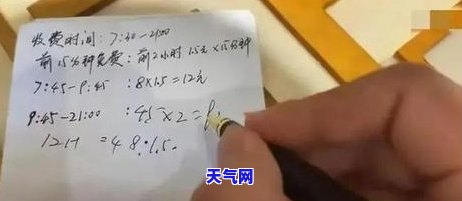 收费时间：7:30-21:00
前15分钟免费：前2小时 1.5元×15分钟
7:45-9:45 :8×1.5=12元
9:45-21:00 :45×2=9
天气网